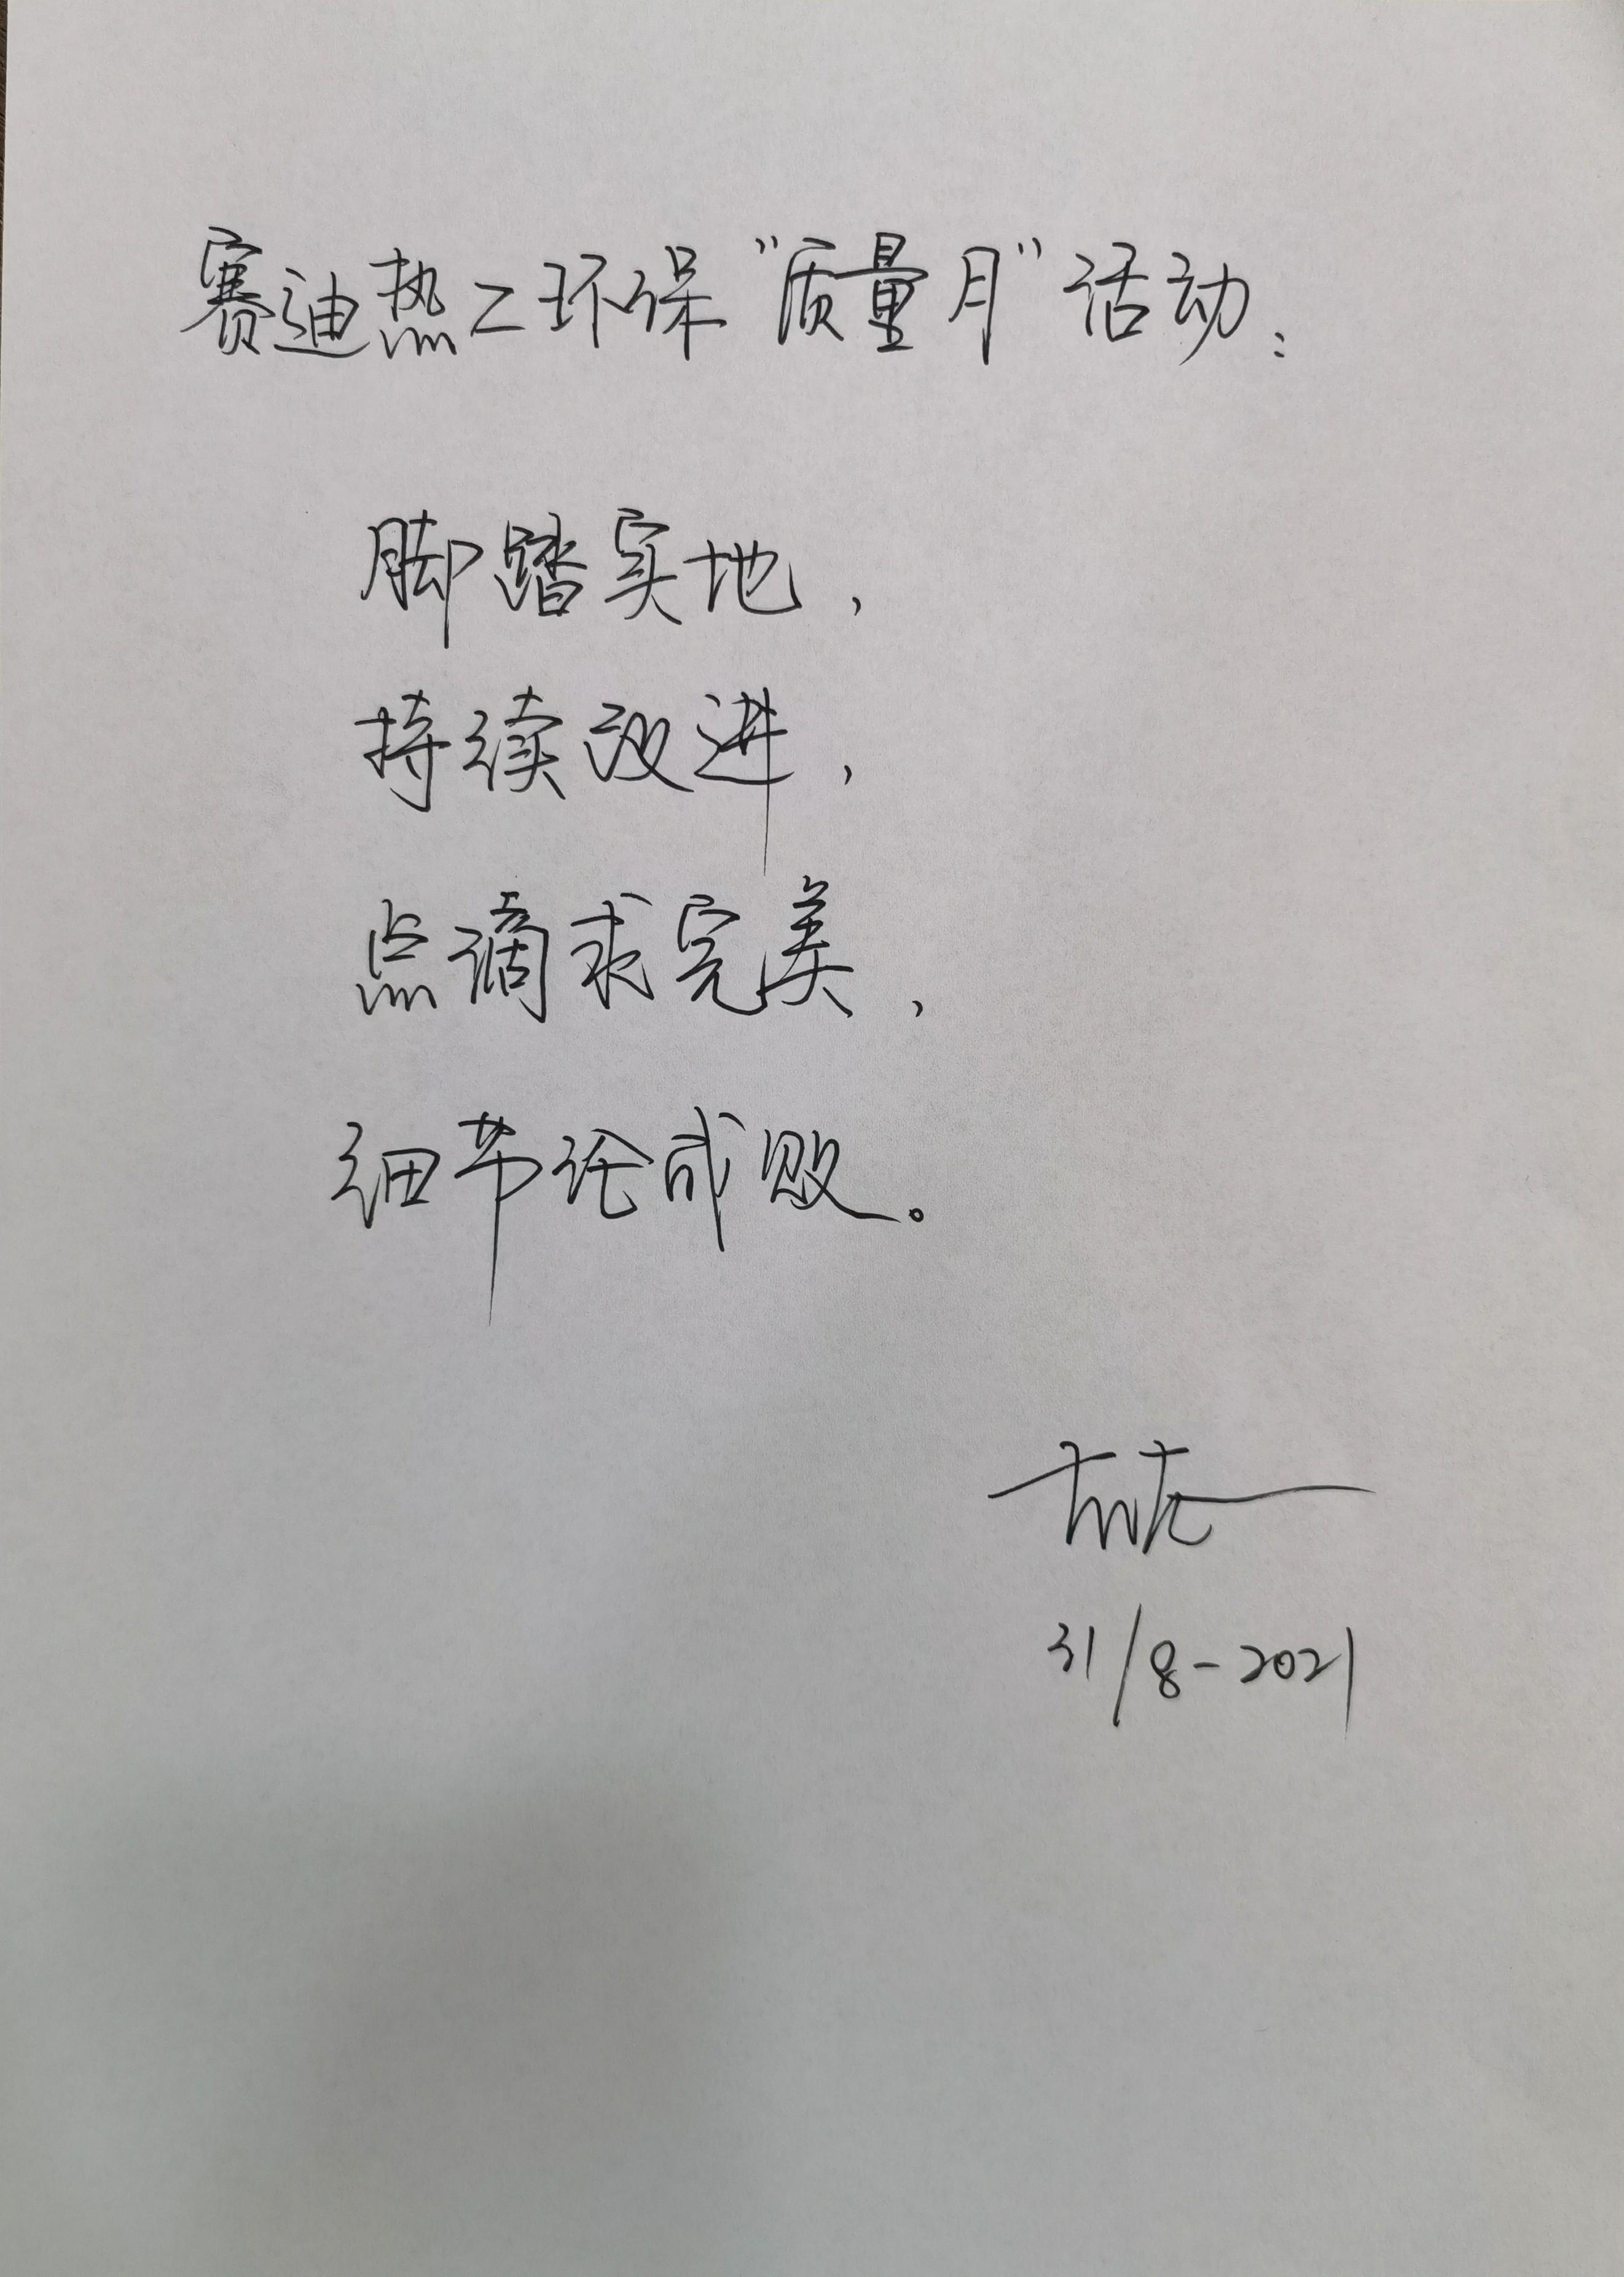 赛迪热工环保“质量月”活动：
脚踏实地，
持续改进，
点滴求完美，
细节论成败。
31/8-2021